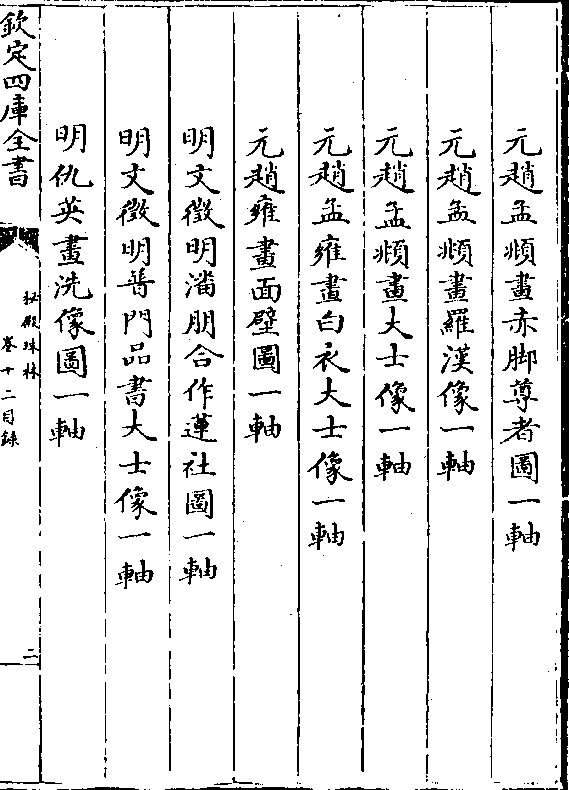 元趙孟頫畫赤脚尊者圖一軸
元趙孟頫畫羅漢像一軸
元趙孟頫畫大士像一軸
元趙孟雍畫白衣大士像一軸
元趙雍畫面壁圖一軸
明文徵明潘朋合作蓮社圖一軸
明文徵明普門品書大士像一軸
明仇英畫洗像圖一軸
欽定四庫全書
秘殿珠林
卷十二目録
二